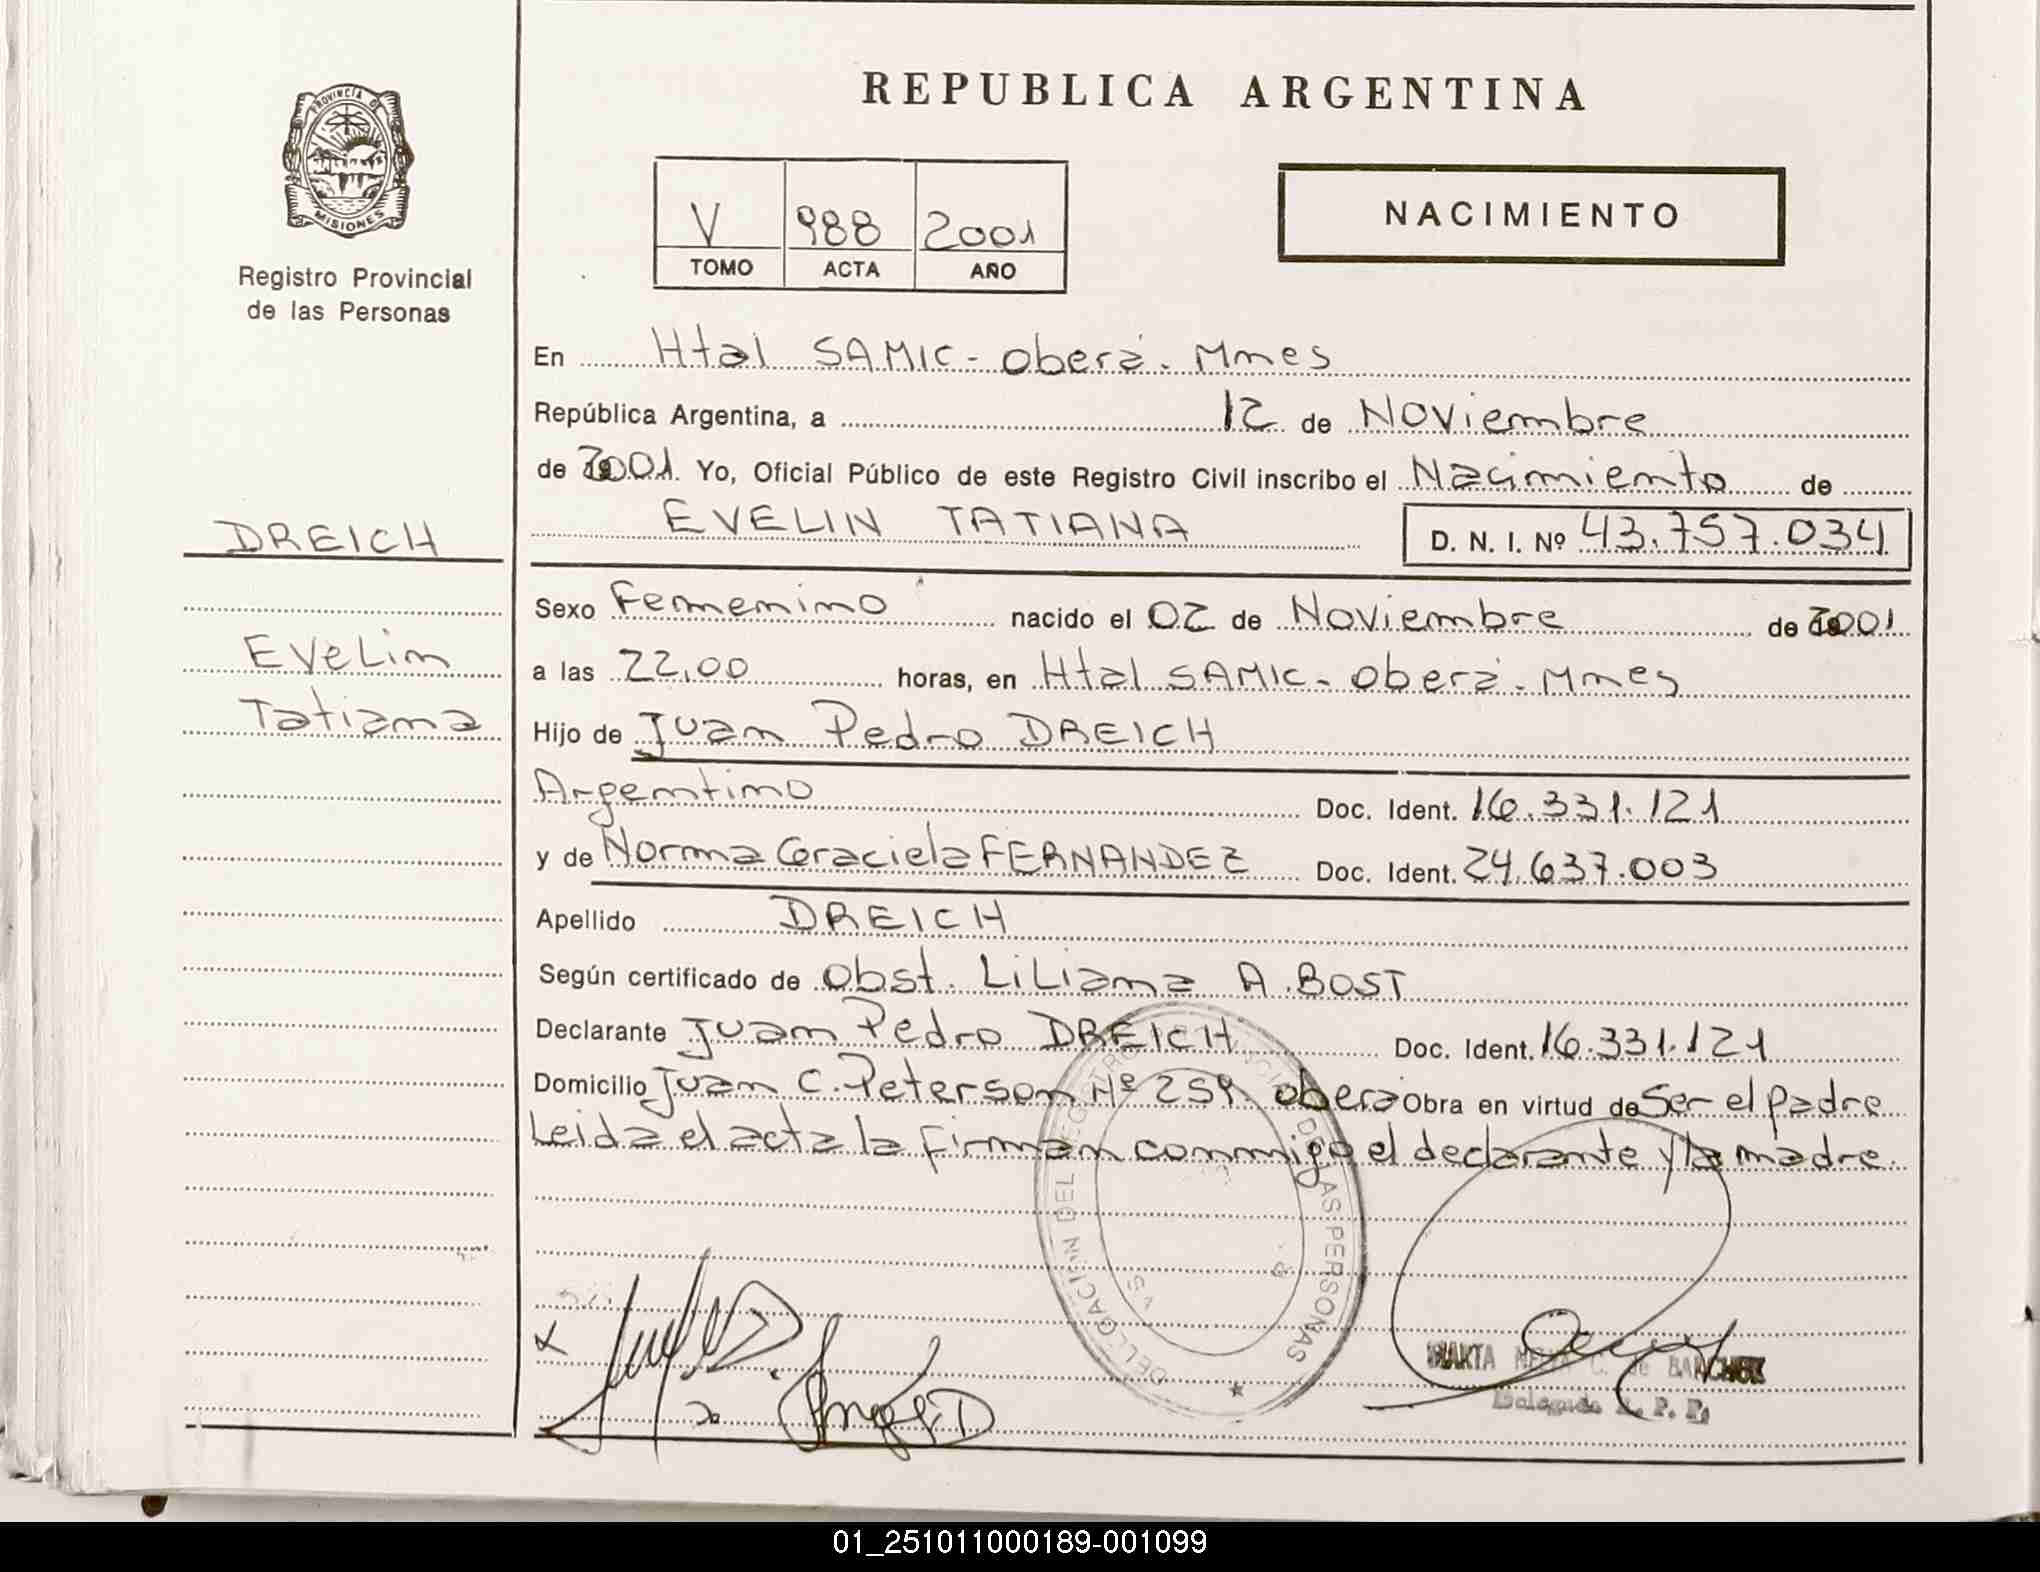 REPUBLICA ARGENTINA
PROVINCIA D
MISIONES
Registro Provincial
de las Personas
V 988 2001
TOMO ACTA AÑO
NACIMIENTO
En Htal SAMIC - Oberá - Mnes
República Argentina, a 12 de Noviembre
de 2001. Yo, Oficial Público de este Registro Civil inscribo el Nacimiento de
EVELIN TATIANA D. N. I. Nº 43.757.034
DREICH
Evelin
Tatiana
Sexo Femenino nacido el 02 de Noviembre de 2001
a las 22,00 horas, en Htal SAMIC - Oberá - Mnes
Hijo de Juan Pedro DREICH
Argentino Doc. Ident. 16.331.121
y de Norma Graciela FERNANDEZ Doc. Ident. 24.637.003
Apellido DREICH
Según certificado de Obst. Liliana A. BOST
Declarante Juan Pedro DREICH Doc. Ident. 16.331.121
Domicilio Juan C. Peterson Nº 259 Oberá Obra en virtud de Ser el padre
Leida el acta la firman conmigo el declarante y la madre.
DEL REGISTRO AS PERSONAS
MARTA C. de
01_251011000189-001099